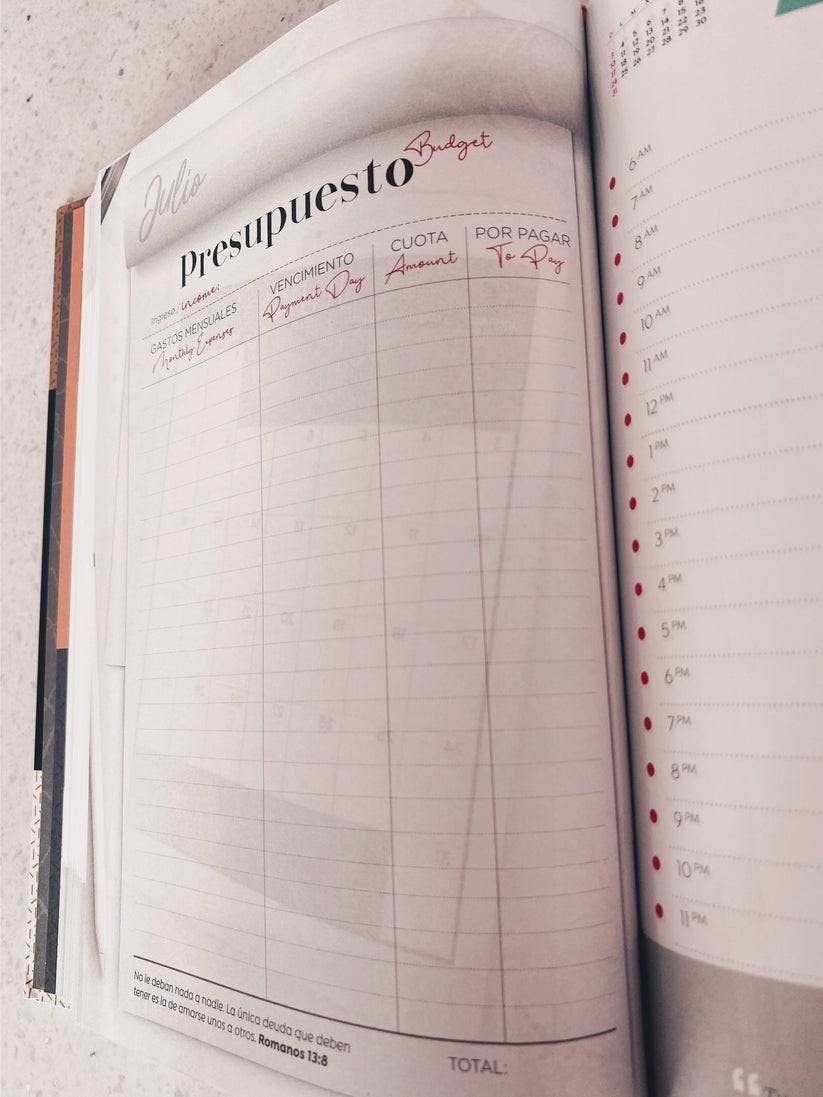 Julio
Presupuesto Budget
Ingreso / income:
GASTOS MENSUALES
Monthly Expenses
VENCIMIENTO
Payment Day
CUOTA
Amount
POR PAGAR
To Pay
No le deban nada a nadie. La única deuda que deben
tener es la de amarse unos a otros. Romanos 13:8
TOTAL:
6 AM
7 AM
8 AM
9 AM
10 AM
11 AM
12 PM
1 PM
2 PM
3 PM
4 PM
5 PM
6 PM
7 PM
8 PM
9 PM
10 PM
11 PM